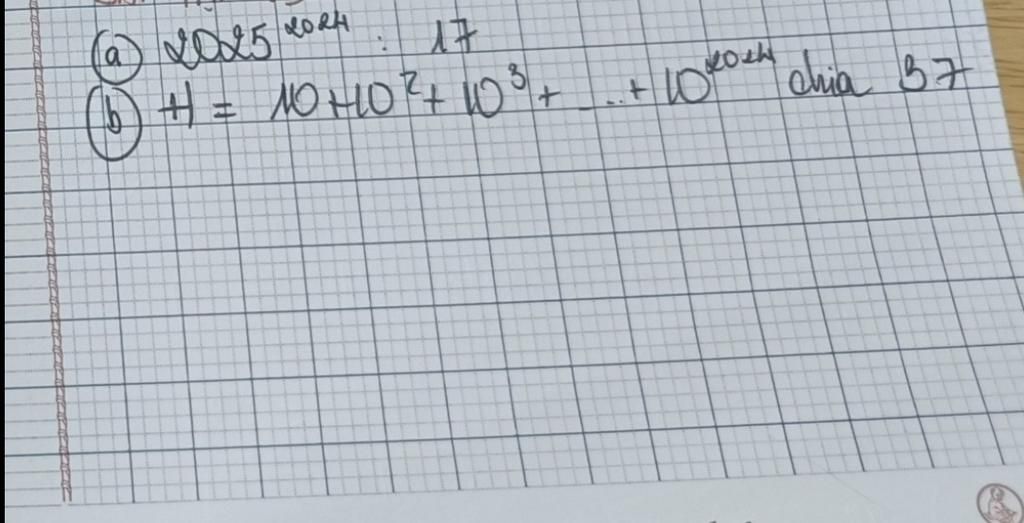 (a) 2025²⁰²⁴ : 17
(b) H = 10 + 10² + 10³ + ... + 10²⁰²⁴ chia 37